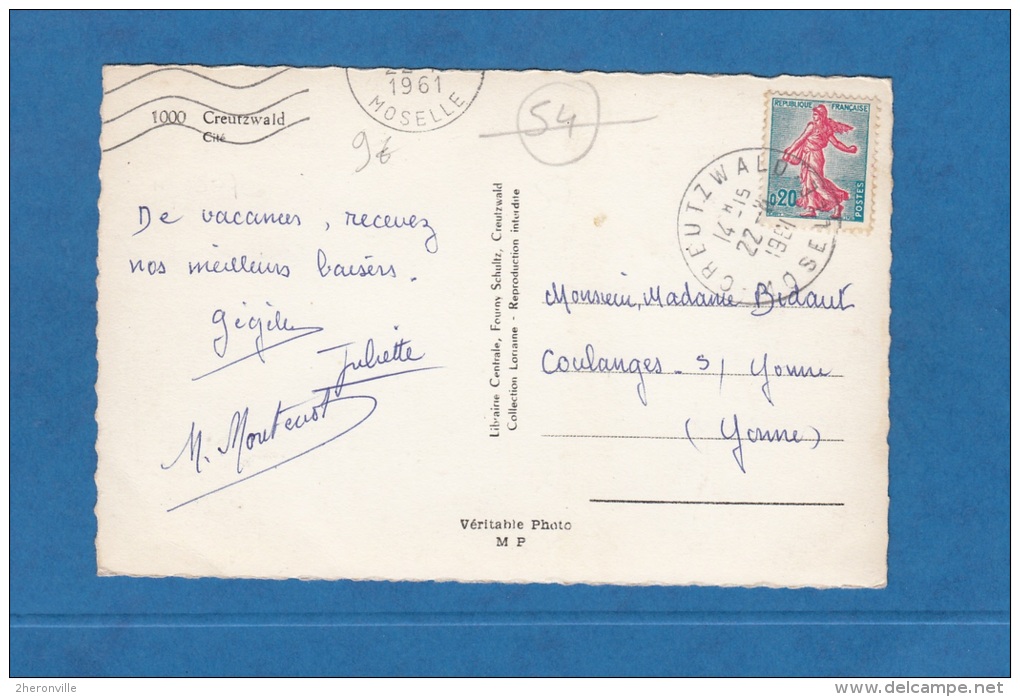 1961
MOSELLE
54
1000 Creutzwald
Cité
RÉPUBLIQUE FRANÇAISE
0,20
POSTES
CREUTZWALD
14 H -15
22 -
1961
MOSELLE
De vacances, recevez
nos meilleurs baisers.
Juliette
M. Montenot
Librairie Centrale, Fourny Schultz, Creutzwald
Collection Lorraine - Reproduction interdite
Monsieur, Madame Bidaut
Coulanges - s/ Yonne
(Yonne)
Véritable Photo
M P
2heronville
delcampe.net